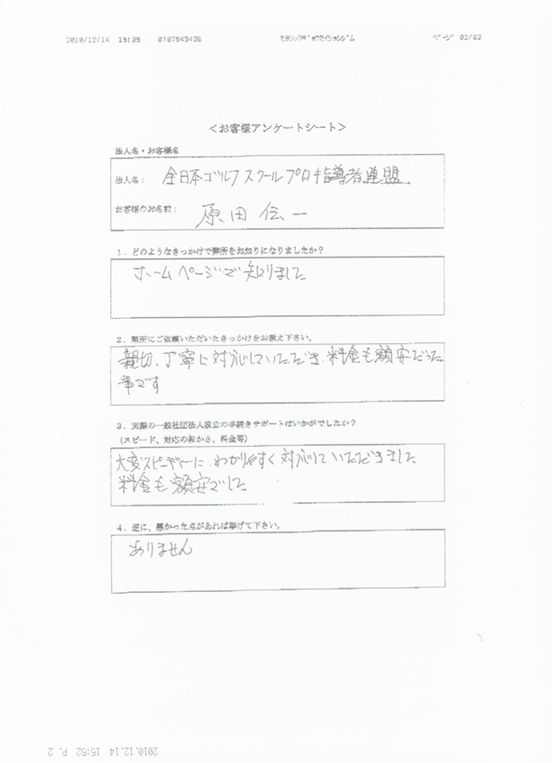 2010/12/14 15:35 0787549436 ﾓﾖﾘｼｯｸｷﾞｮｳｾｲｼｮｼｼﾞﾑ ﾍﾟｰｼﾞ 02/02
＜お客様アンケートシート＞
法人名・お客様名
法人名： 全日本ゴルフスクールプロ指導者連盟
お客様のお名前： 原田 伝一
１．どのようなきっかけで弊所をお知りになりましたか？
ホームページで知りました
２．弊所にご依頼いただいたきっかけをお教え下さい。
親切、丁寧に対応していただき 料金も額安だった
事です
３．実際の一般社団法人設立の手続きサポートはいかがでしたか？
（スピード、対応の細かさ、料金等）
大変スピーディーに わかりやすく対応していただきました
料金も額安でした
４．逆に、悪かった点があれば挙げて下さい。
ありません
2010.12.14 15:52 P. 2